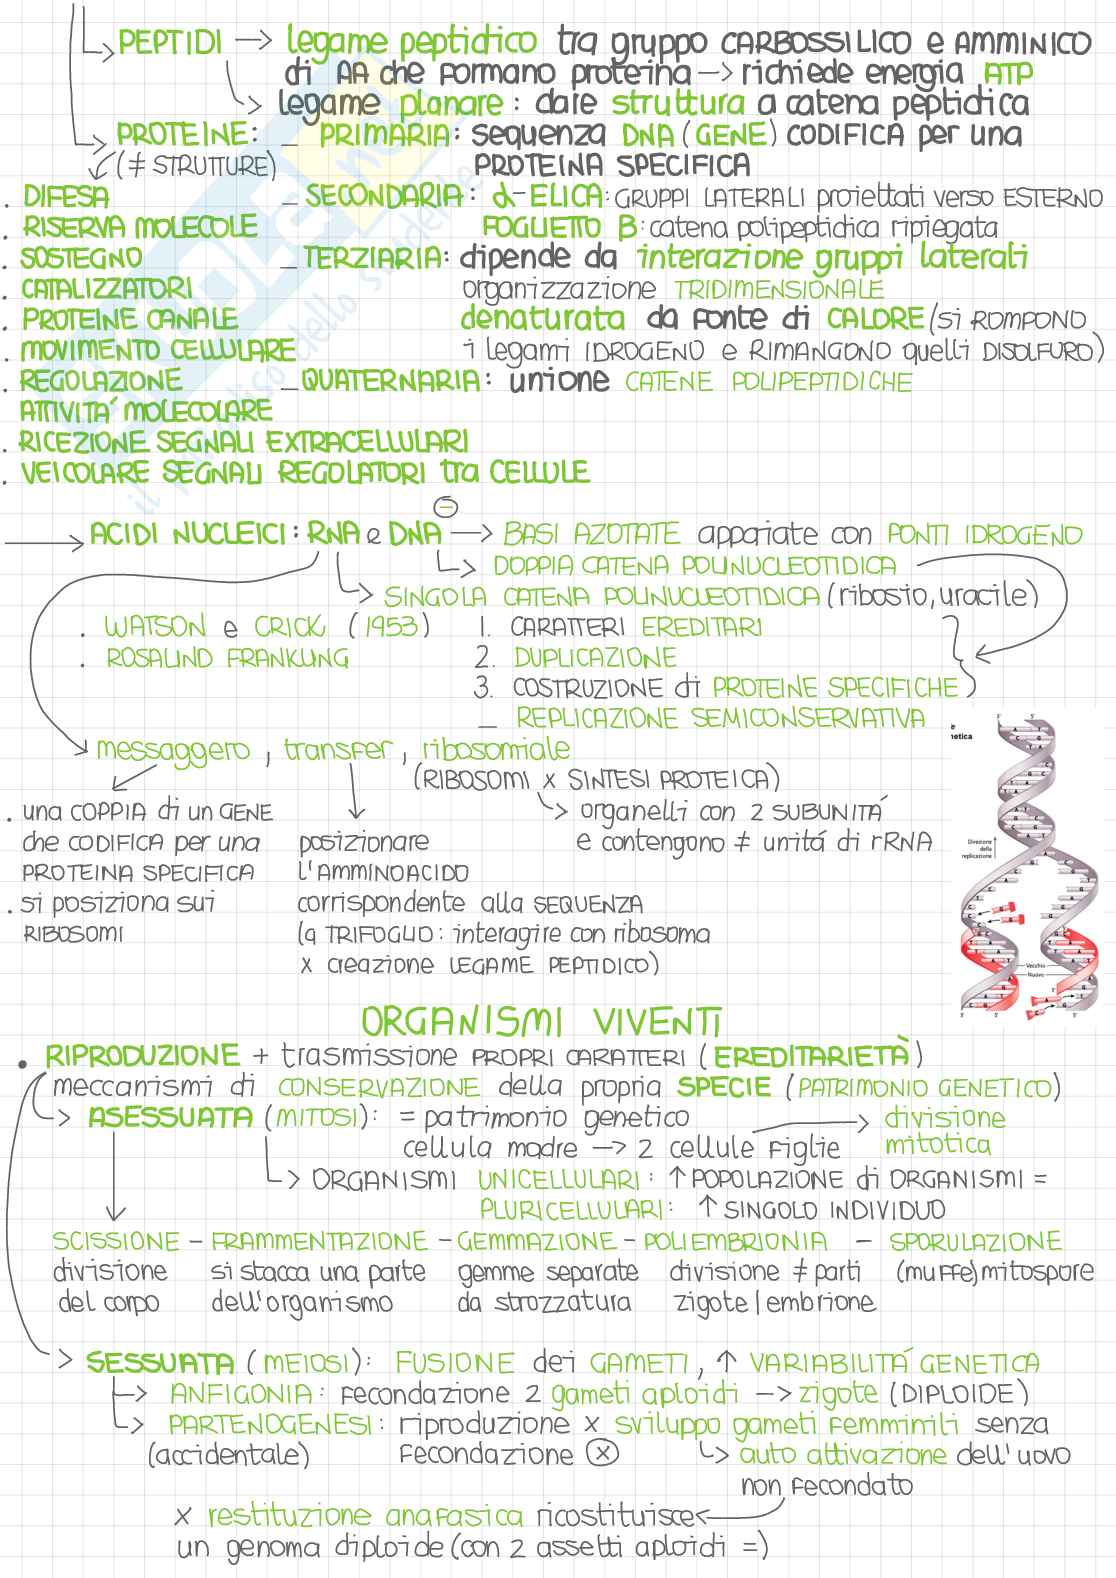 PEPTIDI → legame peptidico tra gruppo CARBOSSILICO e AMMINICO
di AA che formano proteina → richiede energia ATP
legame planare : dare struttura a catena peptidica
PROTEINE: _ PRIMARIA: sequenza DNA (GENE) CODIFICA per una
(≠ STRUTTURE) PROTEINA SPECIFICA
. DIFESA _ SECONDARIA: α-ELICA: GRUPPI LATERALI proiettati verso ESTERNO
. RISERVA MOLECOLE FOGLIETTO B: catena polipeptidica ripiegata
. SOSTEGNO _ TERZIARIA: dipende da interazione gruppi laterali
. CATALIZZATORI organizzazione TRIDIMENSIONALE
. PROTEINE CANALE denaturata da fonte di CALORE (si ROMPONO
. MOVIMENTO CELLULARE i legami IDROGENO e RIMANGONO quelli DISOLFURO)
. REGOLAZIONE _ QUATERNARIA: unione CATENE POLIPEPTIDICHE
ATTIVITÁ MOLECOLARE
. RICEZIONE SEGNALI EXTRACELLULARI
. VEICOLARE SEGNALI REGOLATORI tra CELLULE
→ ACIDI NUCLEICI: RNA e DNA ⊖ → BASI AZOTATE appaiate con PONTI IDROGENO
DOPPIA CATENA POLINUCLEOTIDICA
SINGOLA CATENA POLINUCLEOTIDICA (ribosio, uracile)
. WATSON e CRICK (1953) 1. CARATTERI EREDITARI
. ROSALIND FRANKLING 2. DUPLICAZIONE
3. COSTRUZIONE di PROTEINE SPECIFICHE
_ REPLICAZIONE SEMICONSERVATIVA
messaggero, transfer, ribosomiale
(RIBOSOMI x SINTESI PROTEICA)
. una COPPIA di un GENE → organelli con 2 SUBUNITÁ
che CODIFICA per una posizionare e contengono ≠ unitá di rRNA
PROTEINA SPECIFICA l'AMMINOACIDO
. si posiziona sui corrispondente alla SEQUENZA
RIBOSOMI (a TRIFOGLIO: interagire con ribosoma
x creazione LEGAME PEPTIDICO)
Direzione
della
replicazione
Vecchio
Nuovo
ORGANISMI VIVENTI
• RIPRODUZIONE + trasmissione PROPRI CARATTERI (EREDITARIETÀ)
meccanismi di CONSERVAZIONE della propria SPECIE (PATRIMONIO GENETICO)
ASESSUATA (MITOSI): = patrimonio genetico → divisione
cellula madre → 2 cellule figlie mitotica
ORGANISMI UNICELLULARI: ↑ POPOLAZIONE di ORGANISMI =
PLURICELLULARI: ↑ SINGOLO INDIVIDUO
SCISSIONE - FRAMMENTAZIONE - GEMMAZIONE - POLIEMBRIONIA - SPORULAZIONE
divisione si stacca una parte gemme separate divisione ≠ parti (muffe) mitospore
del corpo dell'organismo da strozzatura zigote / embrione
SESSUATA (MEIOSI): FUSIONE dei GAMETI, ↑ VARIABILITÁ GENETICA
ANFIGONIA: fecondazione 2 gameti aploidi → zigote (DIPLOIDE)
PARTENOGENESI: riproduzione x sviluppo gameti femminili senza
(accidentale) fecondazione ⓧ → auto attivazione dell'uovo
non fecondato
x restituzione anafasica ricostituisce
un genoma diploide (con 2 assetti aploidi =)